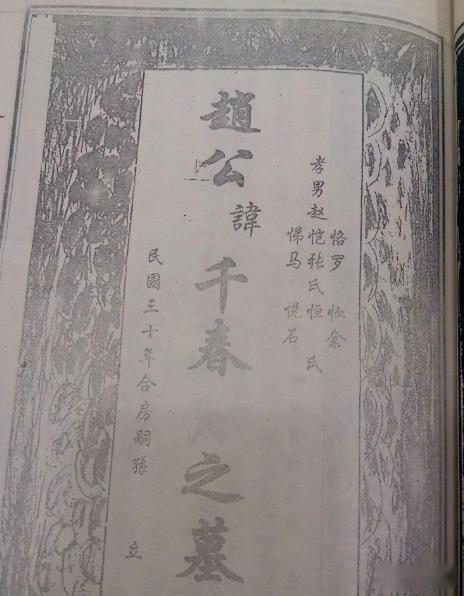 恪罗 恤余
孝男赵恺张氏恒 氏
悌马 悦石
趙公諱千春之墓
民國三十年合房嗣孫 立